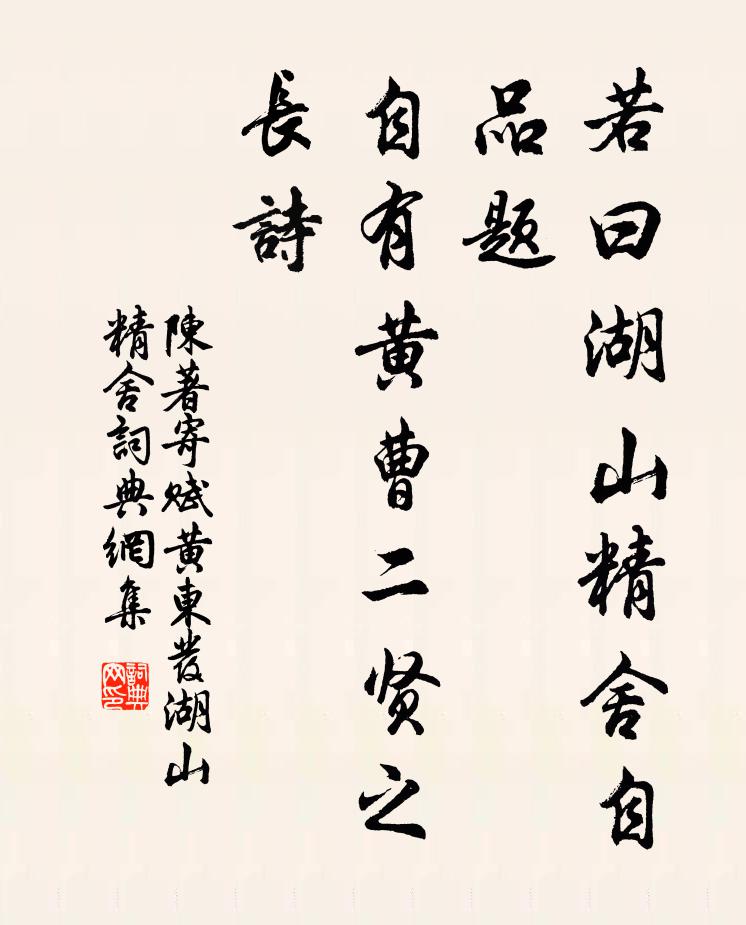 若曰湖山精舍自
品题
自有黄曹二贤之
長詩
陳著寄赋黄東發湖山
精舍詞典網集
詞典
网印